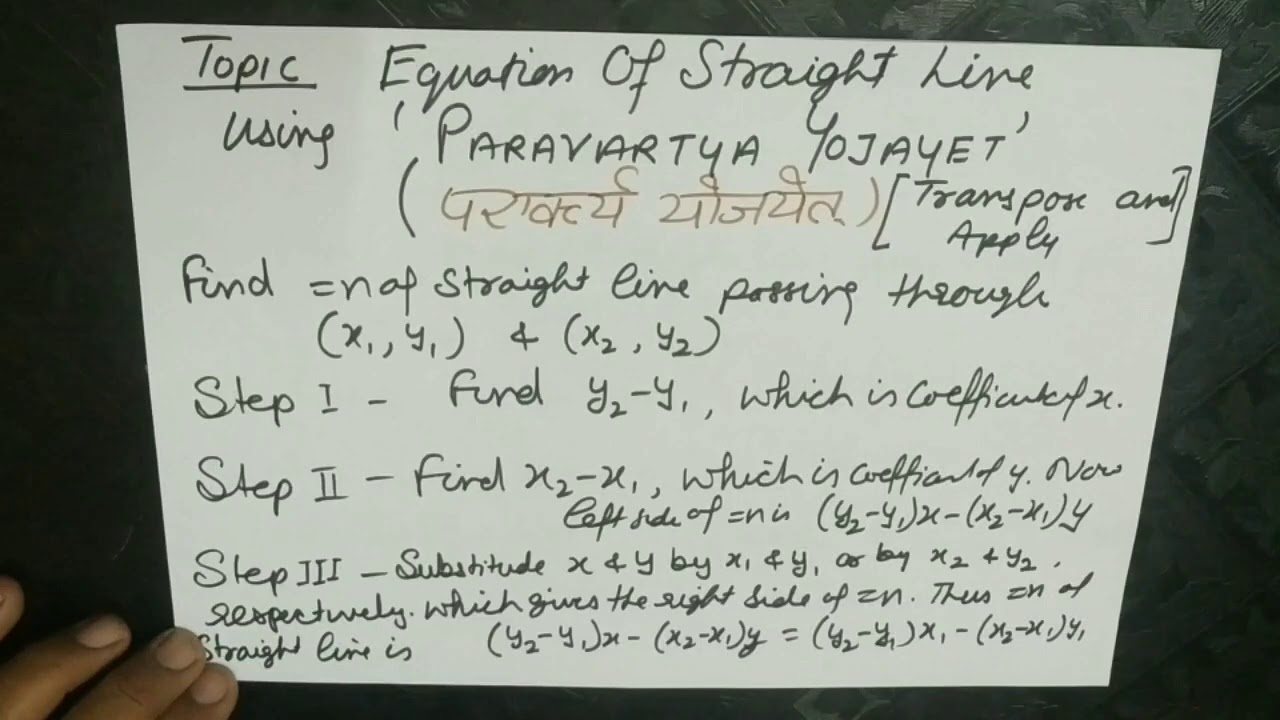 Topic Equation Of Straight Line
Using 'PARAVARTYA YOJAYET'
(परावर्त्य योजयेत्) [Transpose and
Apply]
Find =n of straight line passing through
(x₁, y₁) & (x₂, y₂)
Step I - Find y₂-y₁, which is coefficient of x.
Step II - Find x₂-x₁, which is coefficient of y. Now
left side of =n is (y₂-y₁)x-(x₂-x₁)y
Step III - Substitude x & y by x₁ & y₁ or by x₂ & y₂.
respectively. which gives the right side of =n. Thus =n of
Straight line is (y₂-y₁)x-(x₂-x₁)y = (y₂-y₁)x₁-(x₂-x₁)y₁